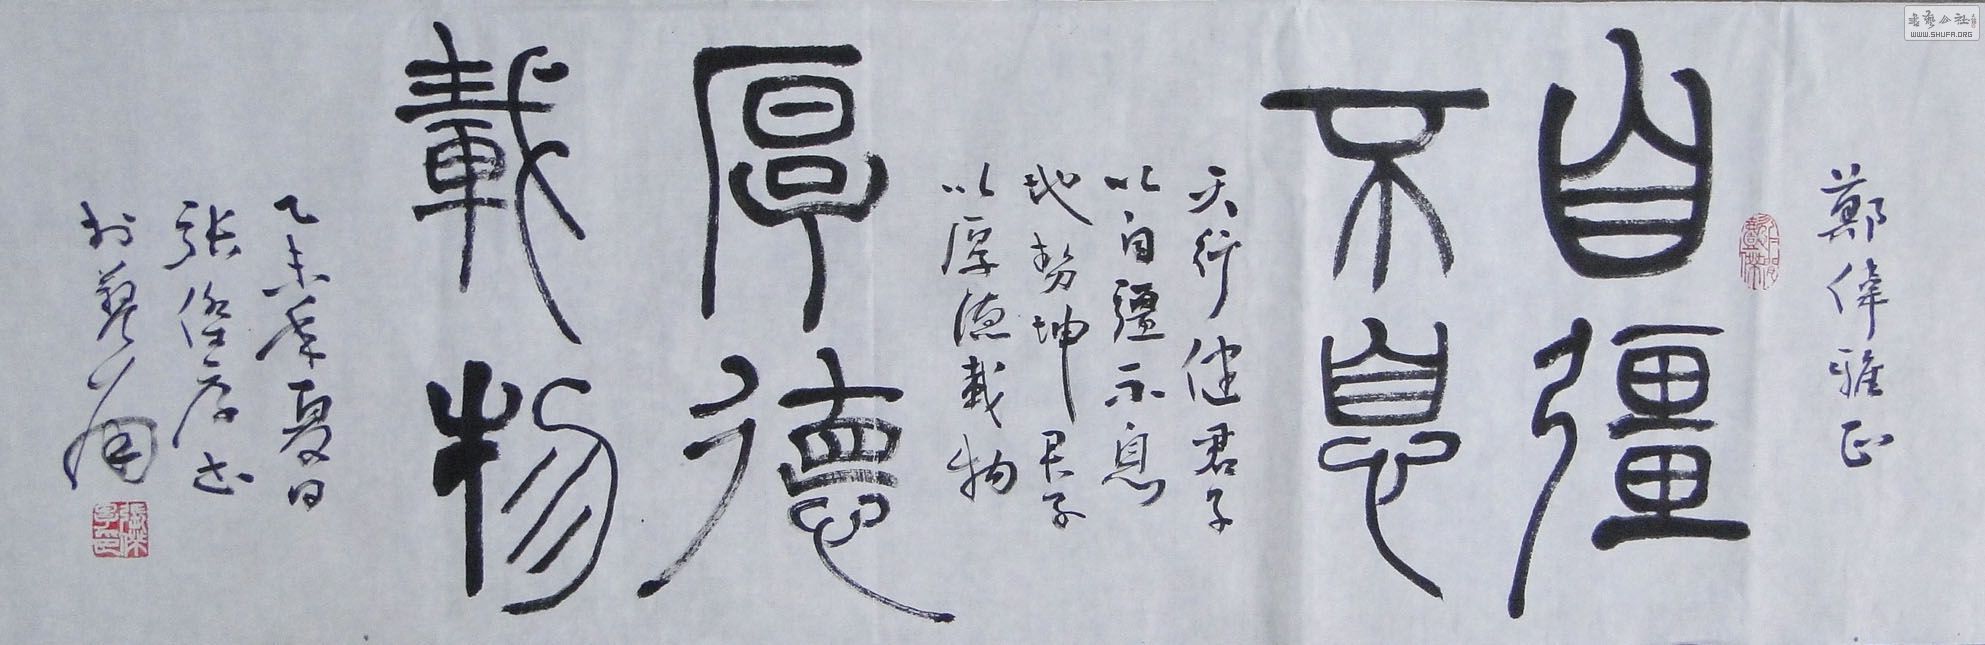 鄭偉雅正
自彊
不息
天行健君子
以自彊不息
地勢坤君子
以厚德載物
厚德
載物
乙未年夏日
張傑序书
於藝
書藝公社
WWW.SHUFA.ORG